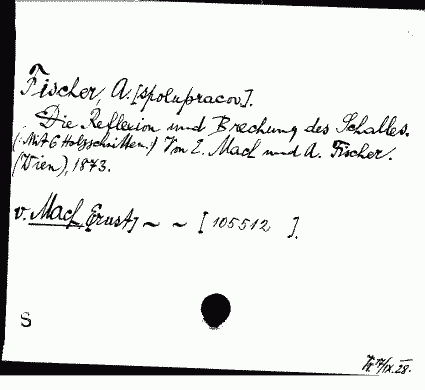 Fischer, A. [spolupracov].
Die Reflexion und Brechung des Schalles.
(: Mit 6 Holzschnitten :) Von E. Mach und A. Fischer.
(Wien), 1873.
v. Mach, Ernst, ~ ~ [105512 ].
S
/IX.28.